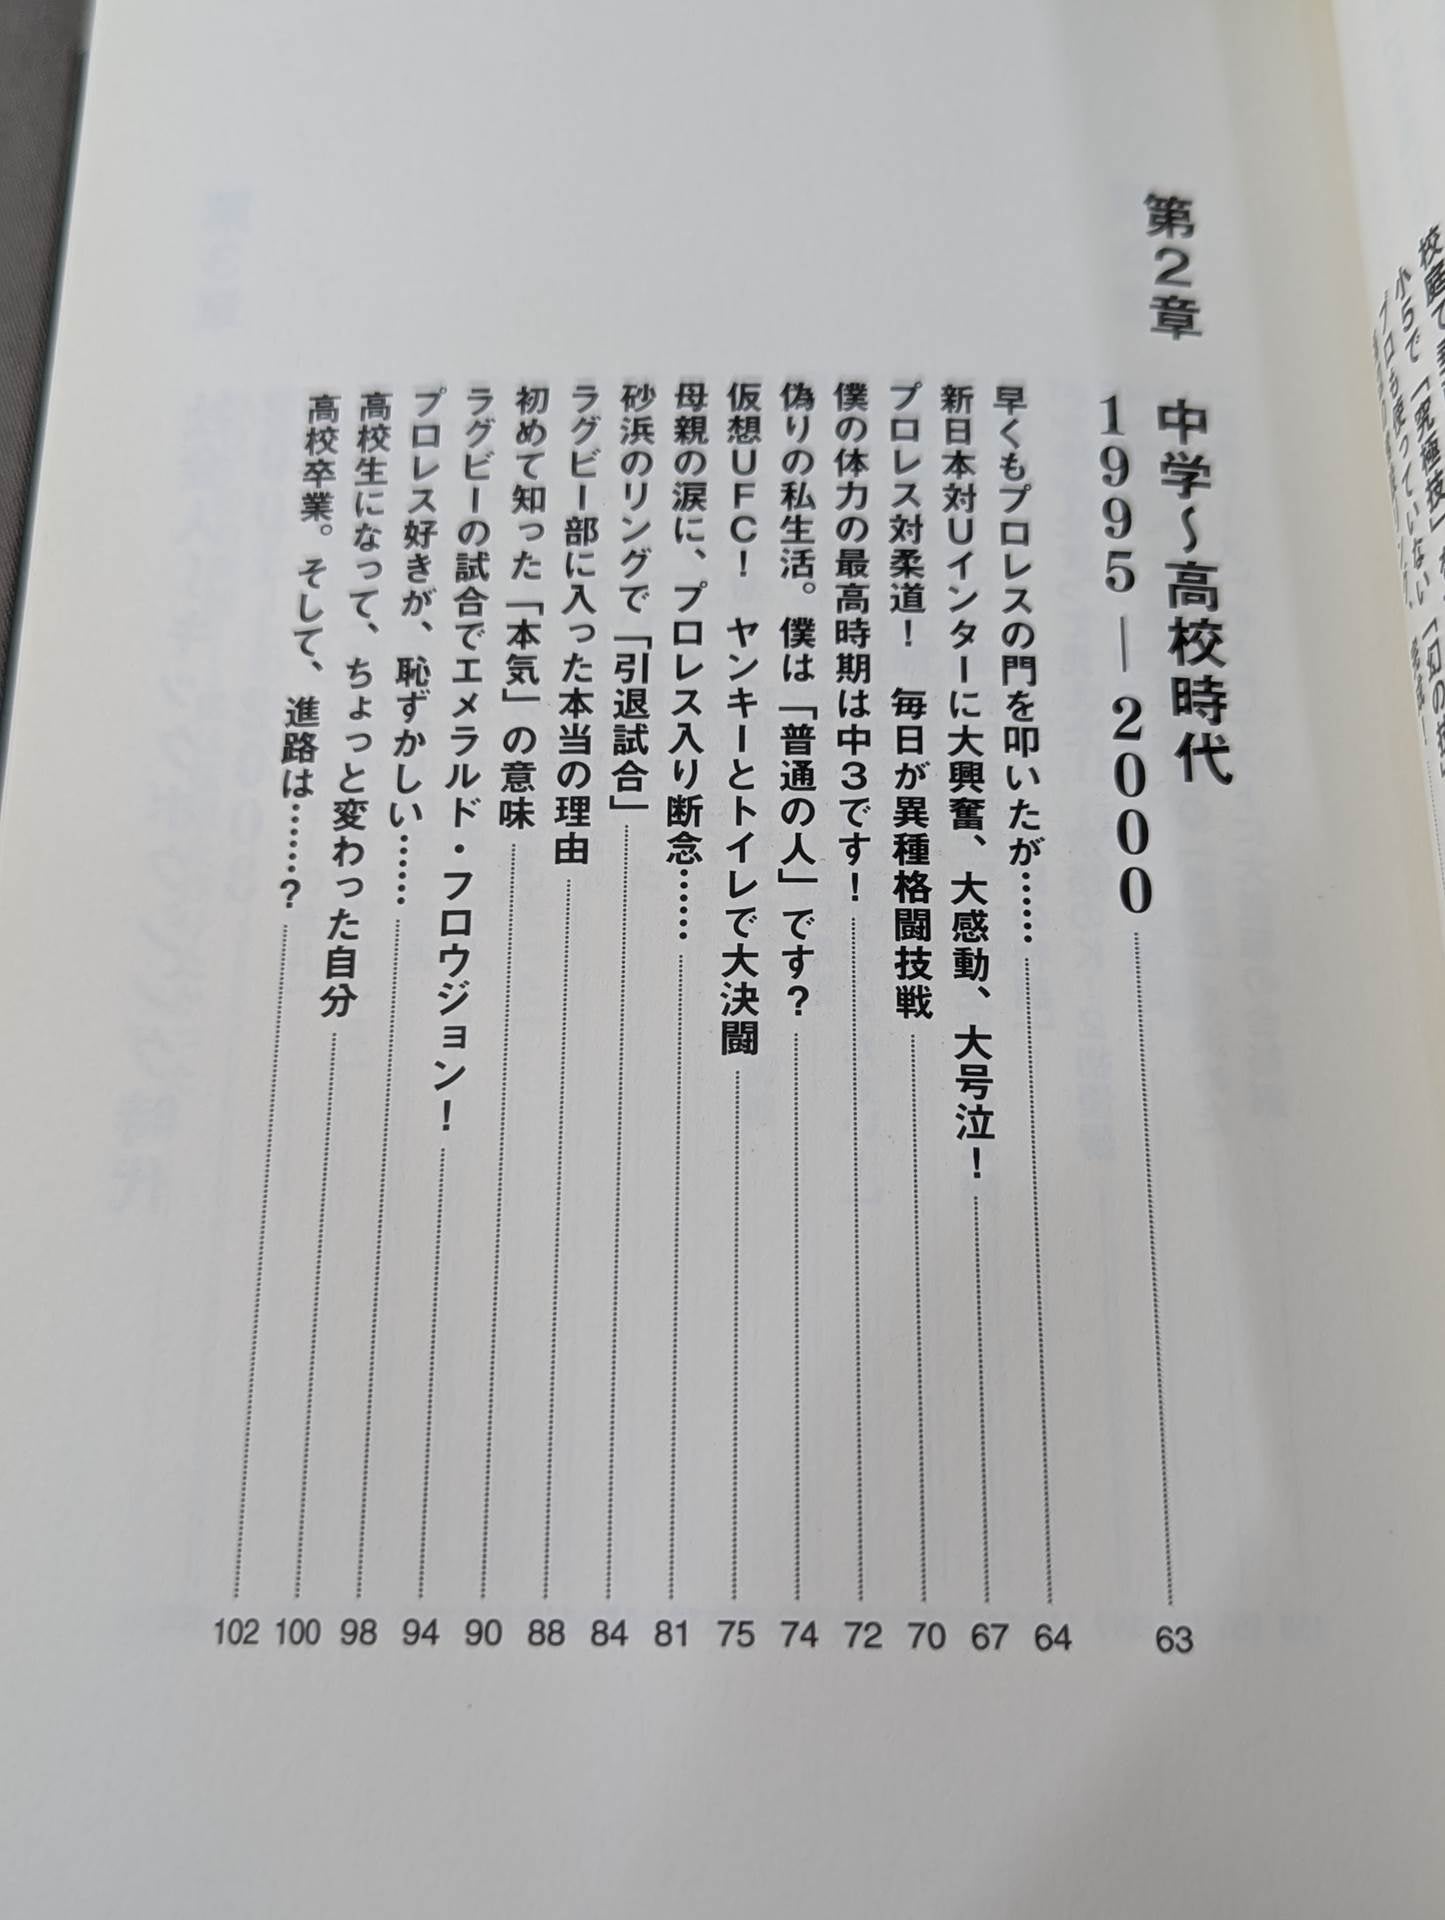 第2章 中学〜高校時代
1995―2000 63
早くもプロレスの門を叩いたが…… 64
新日本対Uインターに大興奮、大感動、大号泣! 67
プロレス対柔道! 毎日が異種格闘技戦 70
僕の体力の最高時期は中3です! 72
偽りの私生活。僕は「普通の人」です? 74
仮想UFC! ヤンキーとトイレで大決闘 75
母親の涙に、プロレス入り断念…… 81
砂浜のリングで「引退試合」 84
ラグビー部に入った本当の理由 88
初めて知った「本気」の意味 90
ラグビーの試合でエメラルド・フロウジョン! 94
プロレス好きが、恥ずかしい…… 98
高校生になって、ちょっと変わった自分 100
高校卒業。そして、進路は……? 102